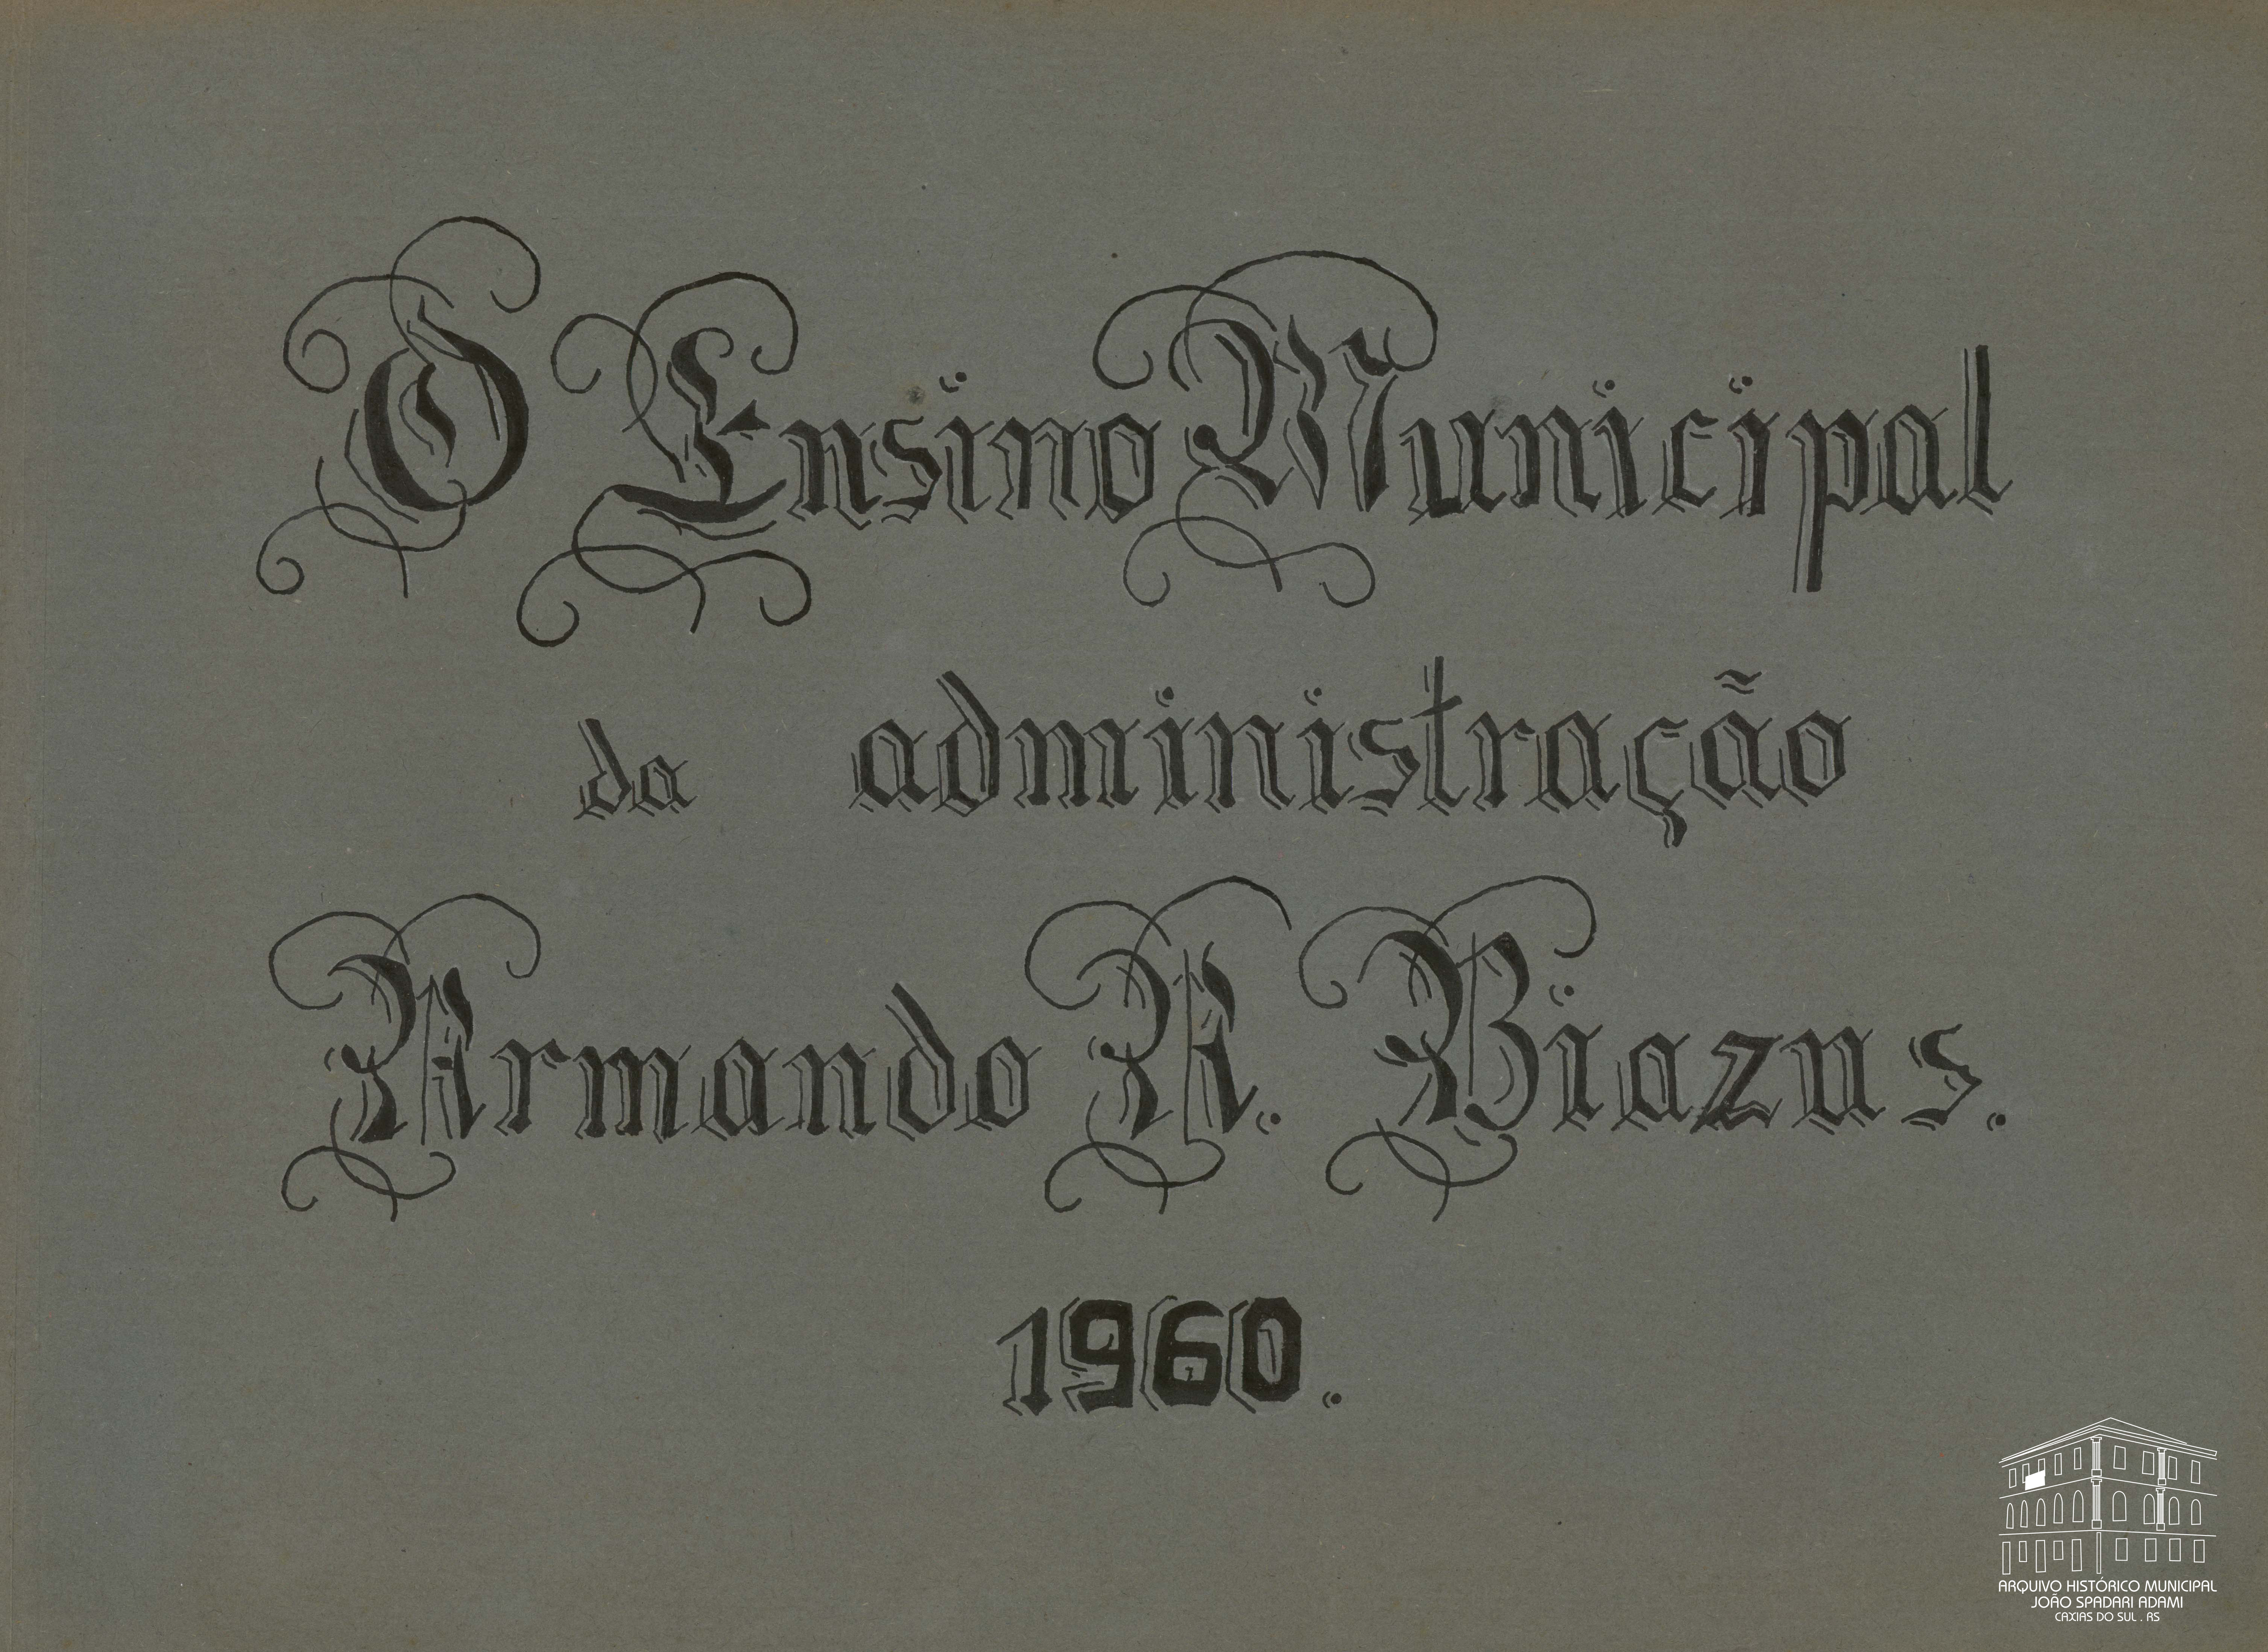 O Ensino Municipal
da administração
Armando A. Biazus.
1960.
ARQUIVO HISTÓRICO MUNICIPAL
JOÃO SPADARI ADAMI
CAXIAS DO SUL . RS